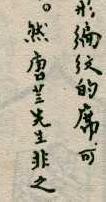 形编纹的席可
。然唐兰先生非之